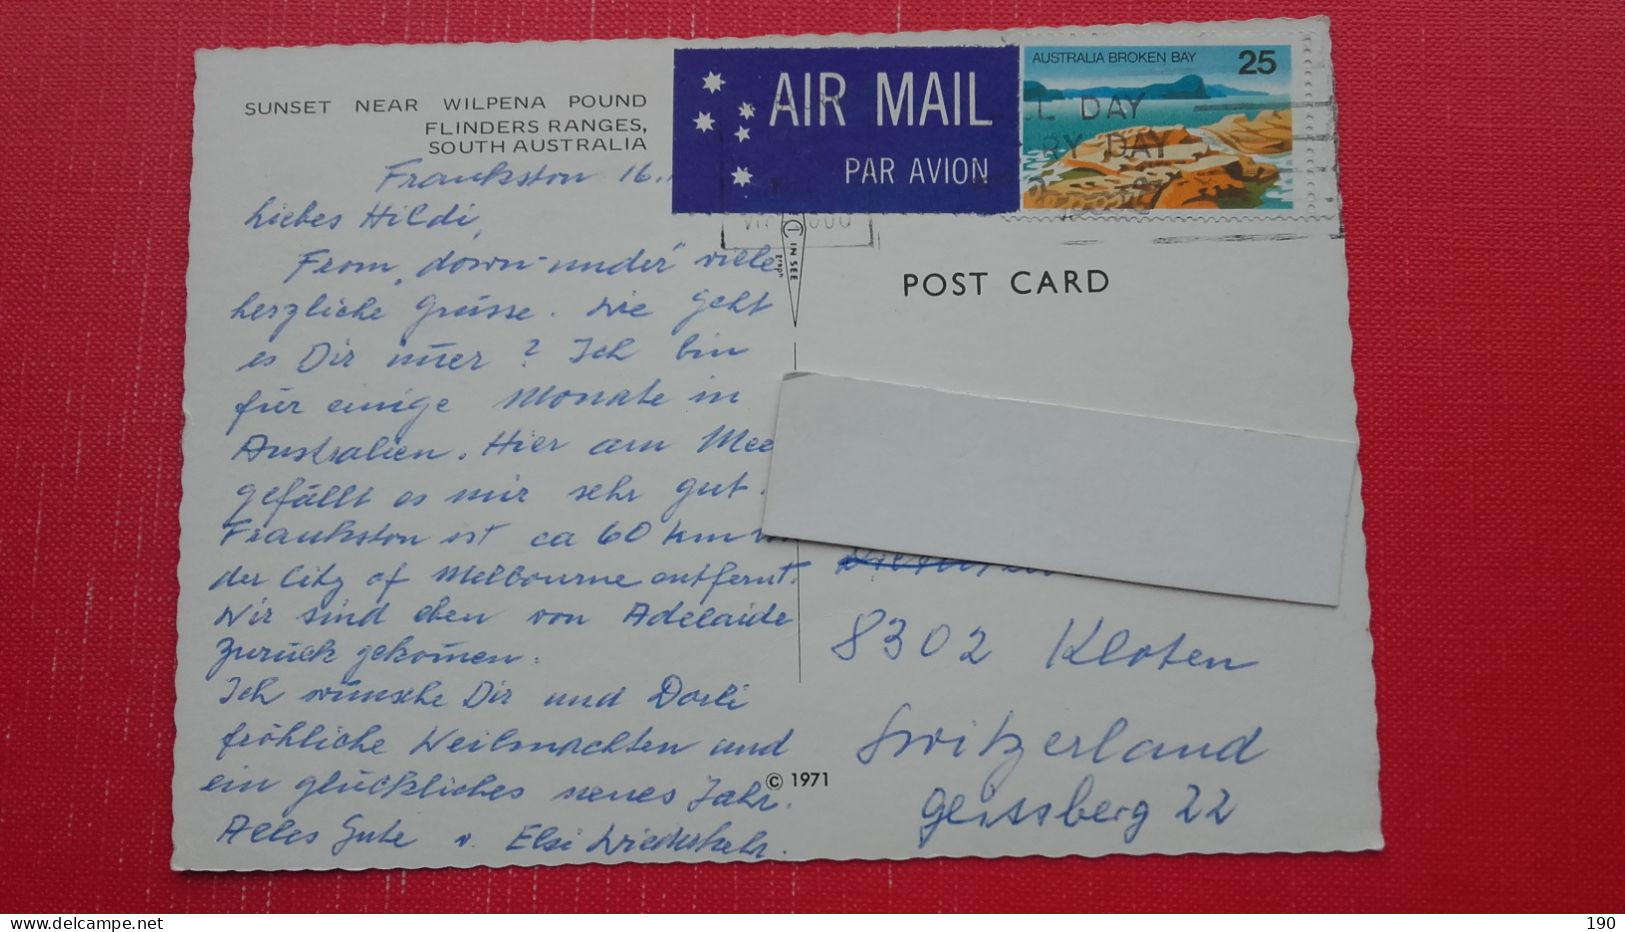 SUNSET NEAR WILPENA POUND
FLINDERS RANGES,
SOUTH AUSTRALIA
AIR MAIL
PAR AVION
AUSTRALIA BROKEN BAY 25
L DAY
RY DAY
Frankston 16.
Liebes Hildi,
From "down-under" viele
herzliche Grüsse. Wie geht
es Dir imer? Ich bin
für einige Monate in
Australien. Hier am Mee
gefällt es mir sehr gut.
Frankston ist ca 60 km
der City of Melbourne entfernt.
Wir sind eben von Adelaide
zurück gekomen.
Ich wünsche Dir und Dorli
fröhliche Weihnachten und
ein glückliches neues Jahr.
Alles Gute v. Elsi Wiederkehr.
IN SEE
graph
POST CARD
8302 Kloten
Switzerland
Geissberg 22
© 1971
190